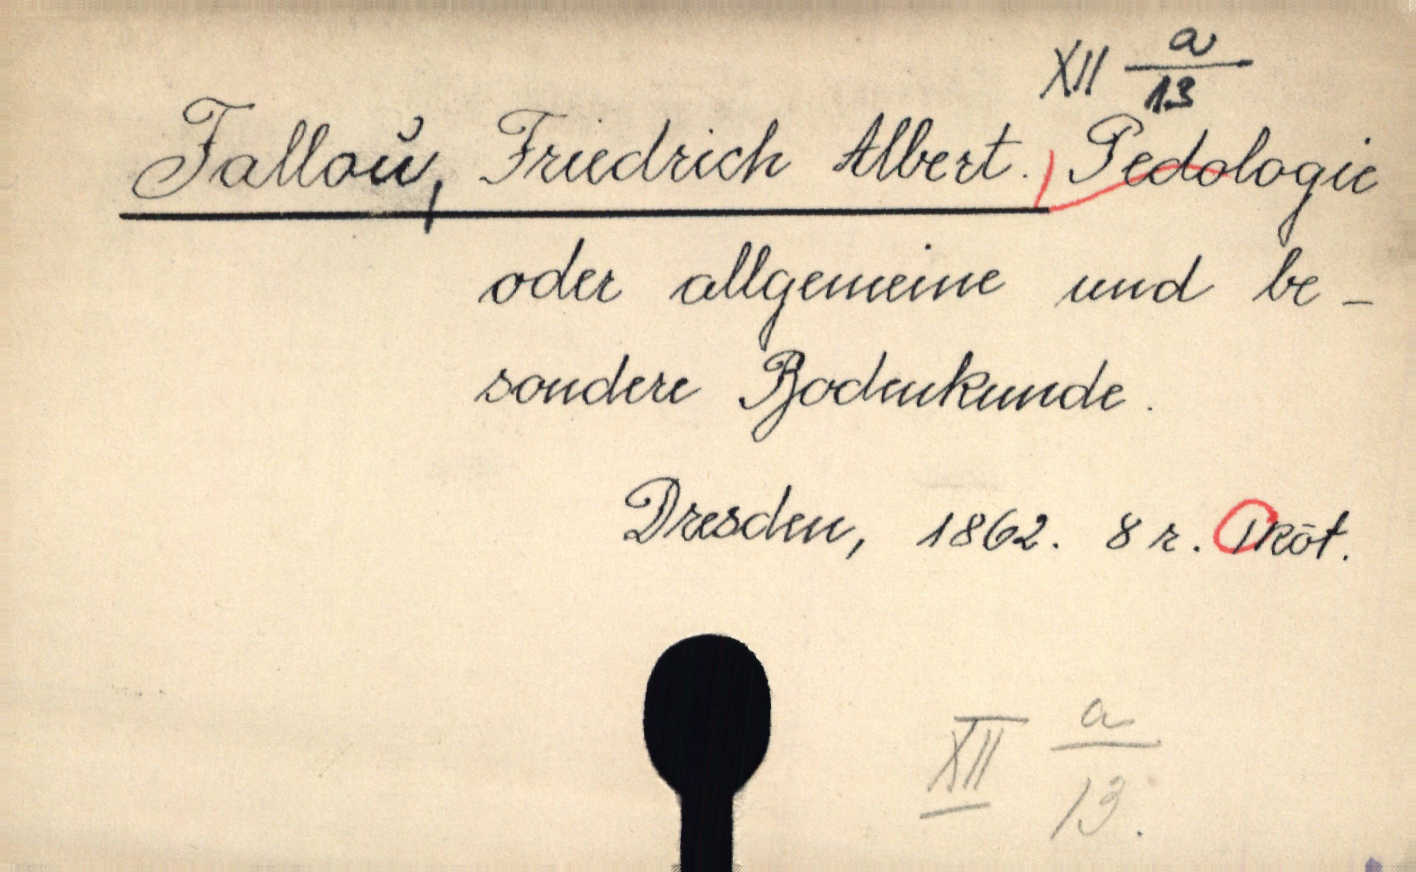 XII a/13
Fallou, Friedrich Albert. Pedologie
oder allgemeine und be-
sondere Bodenkunde.
Dresden, 1862. 8 r. 1 köt.
XII a/13.